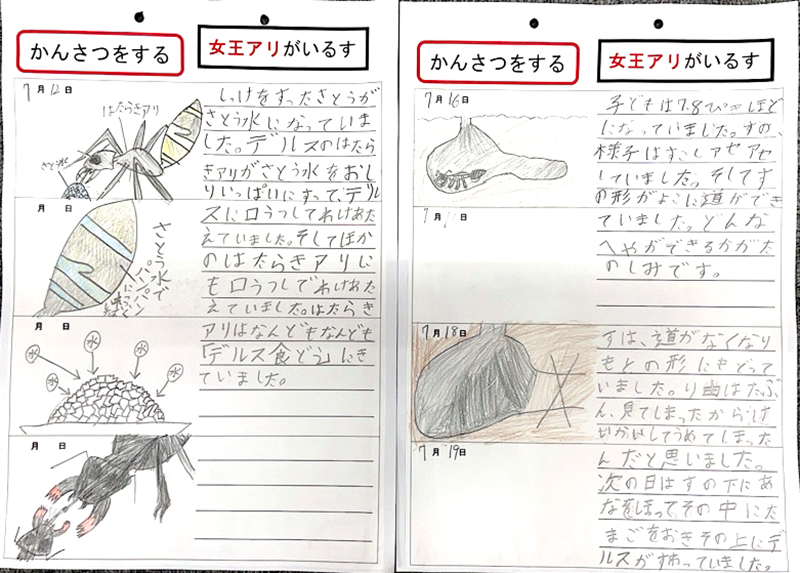 かんさつをする
女王アリがいるす
7月12日
はたらきアリ
さとう水
しっけをすったさとうが
さとう水になっていま
した。デルスのはたら
きアリがさとう水をおし
りいっぱいにすって、デル
スに口うつしてわけあた
えていました。そしてほか
のはたらきアリに
も口うつしでわけあた
えていました。はたらき
アリはなんどもなんども
「デルス食どう」にき
ていました。
月 日
さとう水で
パンパン
月 日
水
水
水
水
水
月 日
かんさつをする
女王アリがいるす
7月16日
子どもは7.8ぴきほど
になっていました。すの、
様子はすこしアセアセ
していました。そしてす
の形がよこに道ができ
ていました。どんな
へやができるかがた
のしみです。
7月 日
7月18日
すは、道がなくなり
もとの形にもどって
いました。り由はたぶ
ん、見てしまったから
してうめてしまった
んだと思いました。
7月19日
次の日はすの下にあ
なをほって、その中にた
まごをおきその上にデ
ルスがすわっていました。